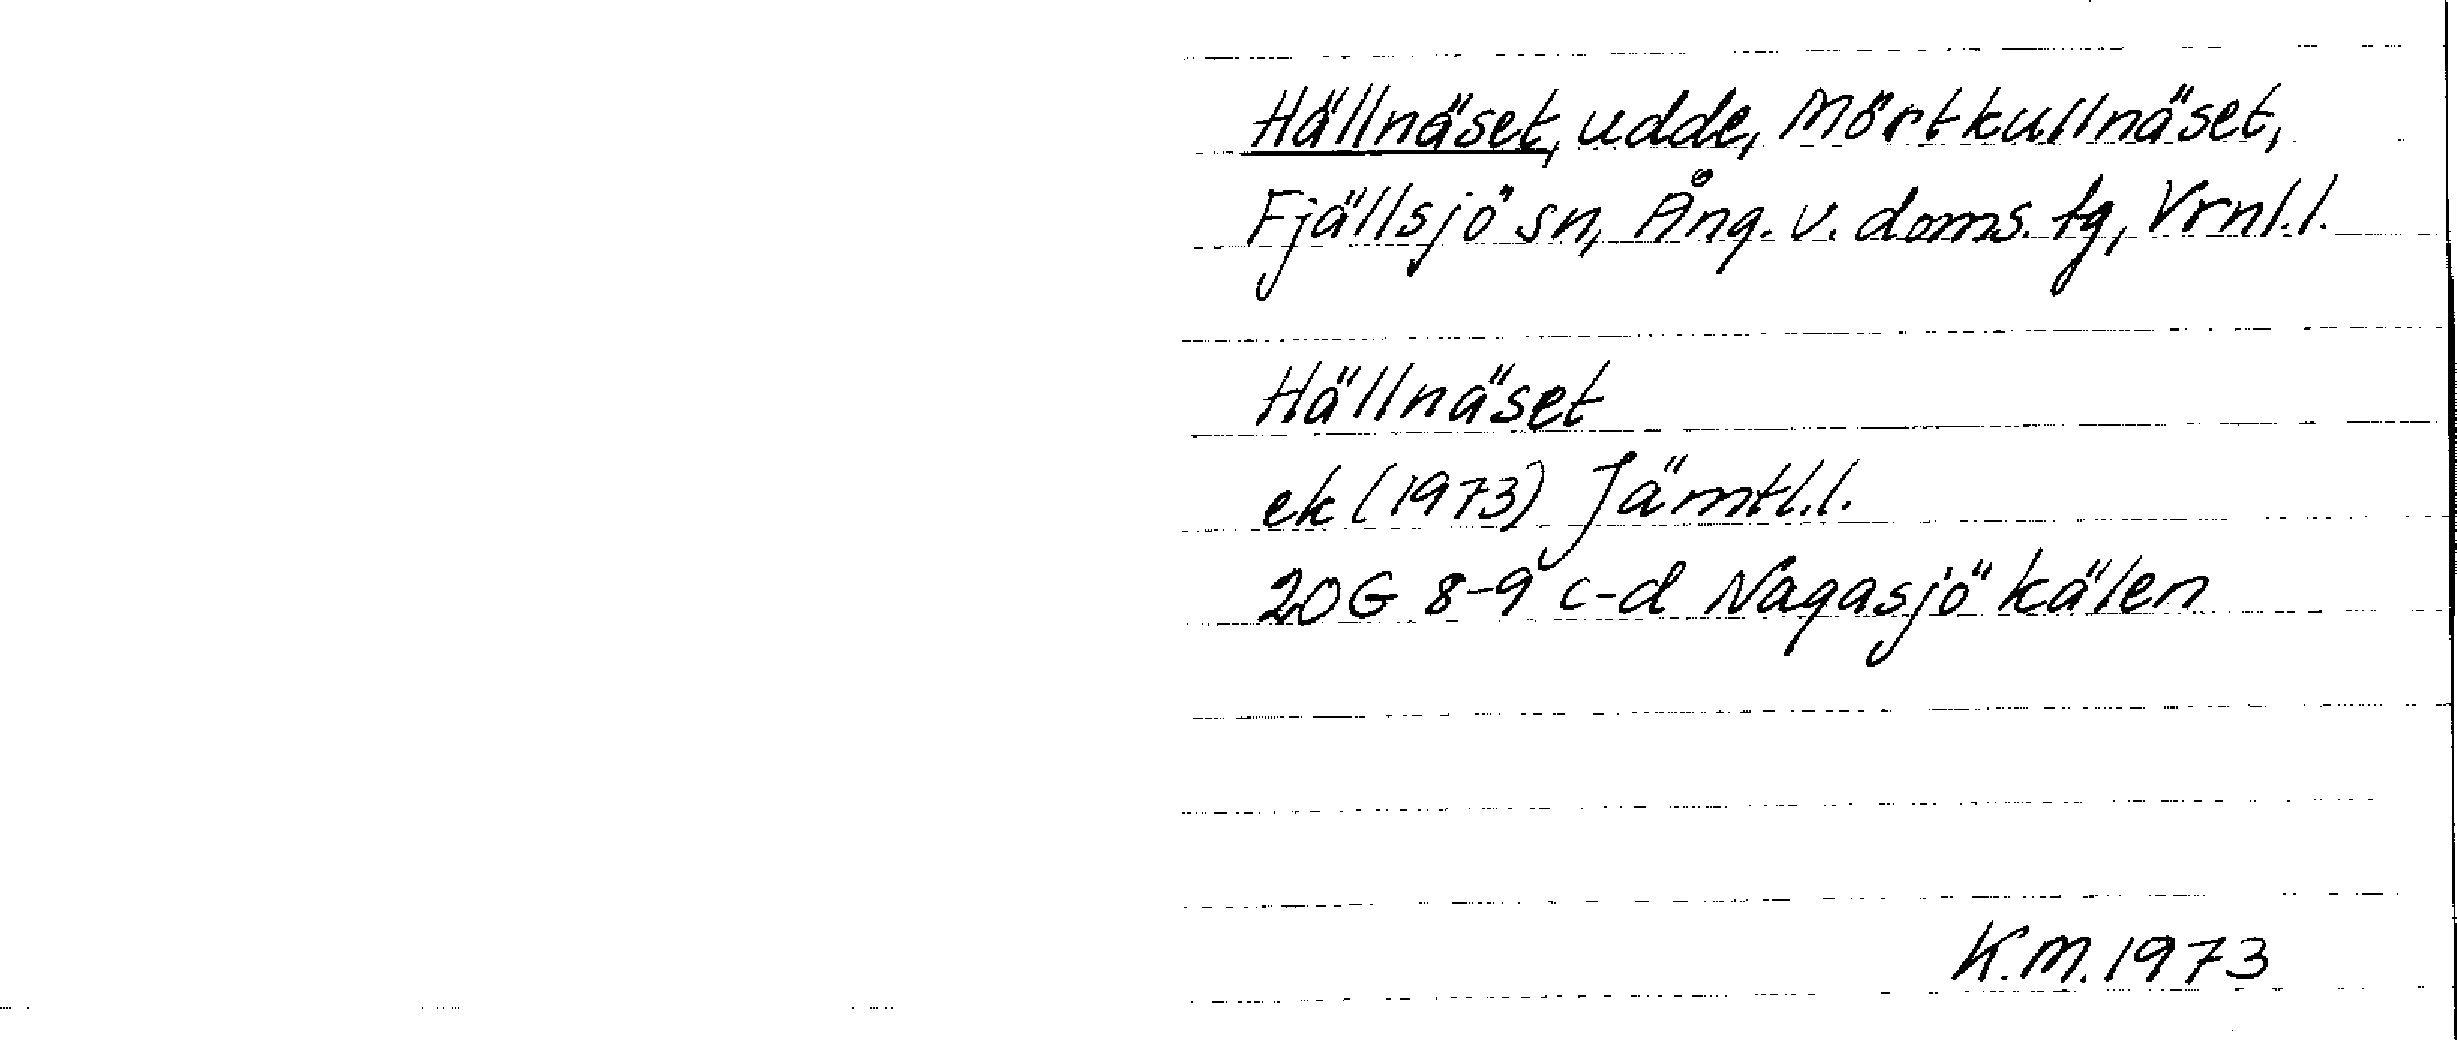 Hällnäset, udde, Mörtkullnäset,
Fjällsjö sn, Ång. v. doms. tg, Vrnl.l.
Hällnäset
ek (1973) Jämtl.l.
20G 8-9 c-d Nagasjökälen
K.M. 1973